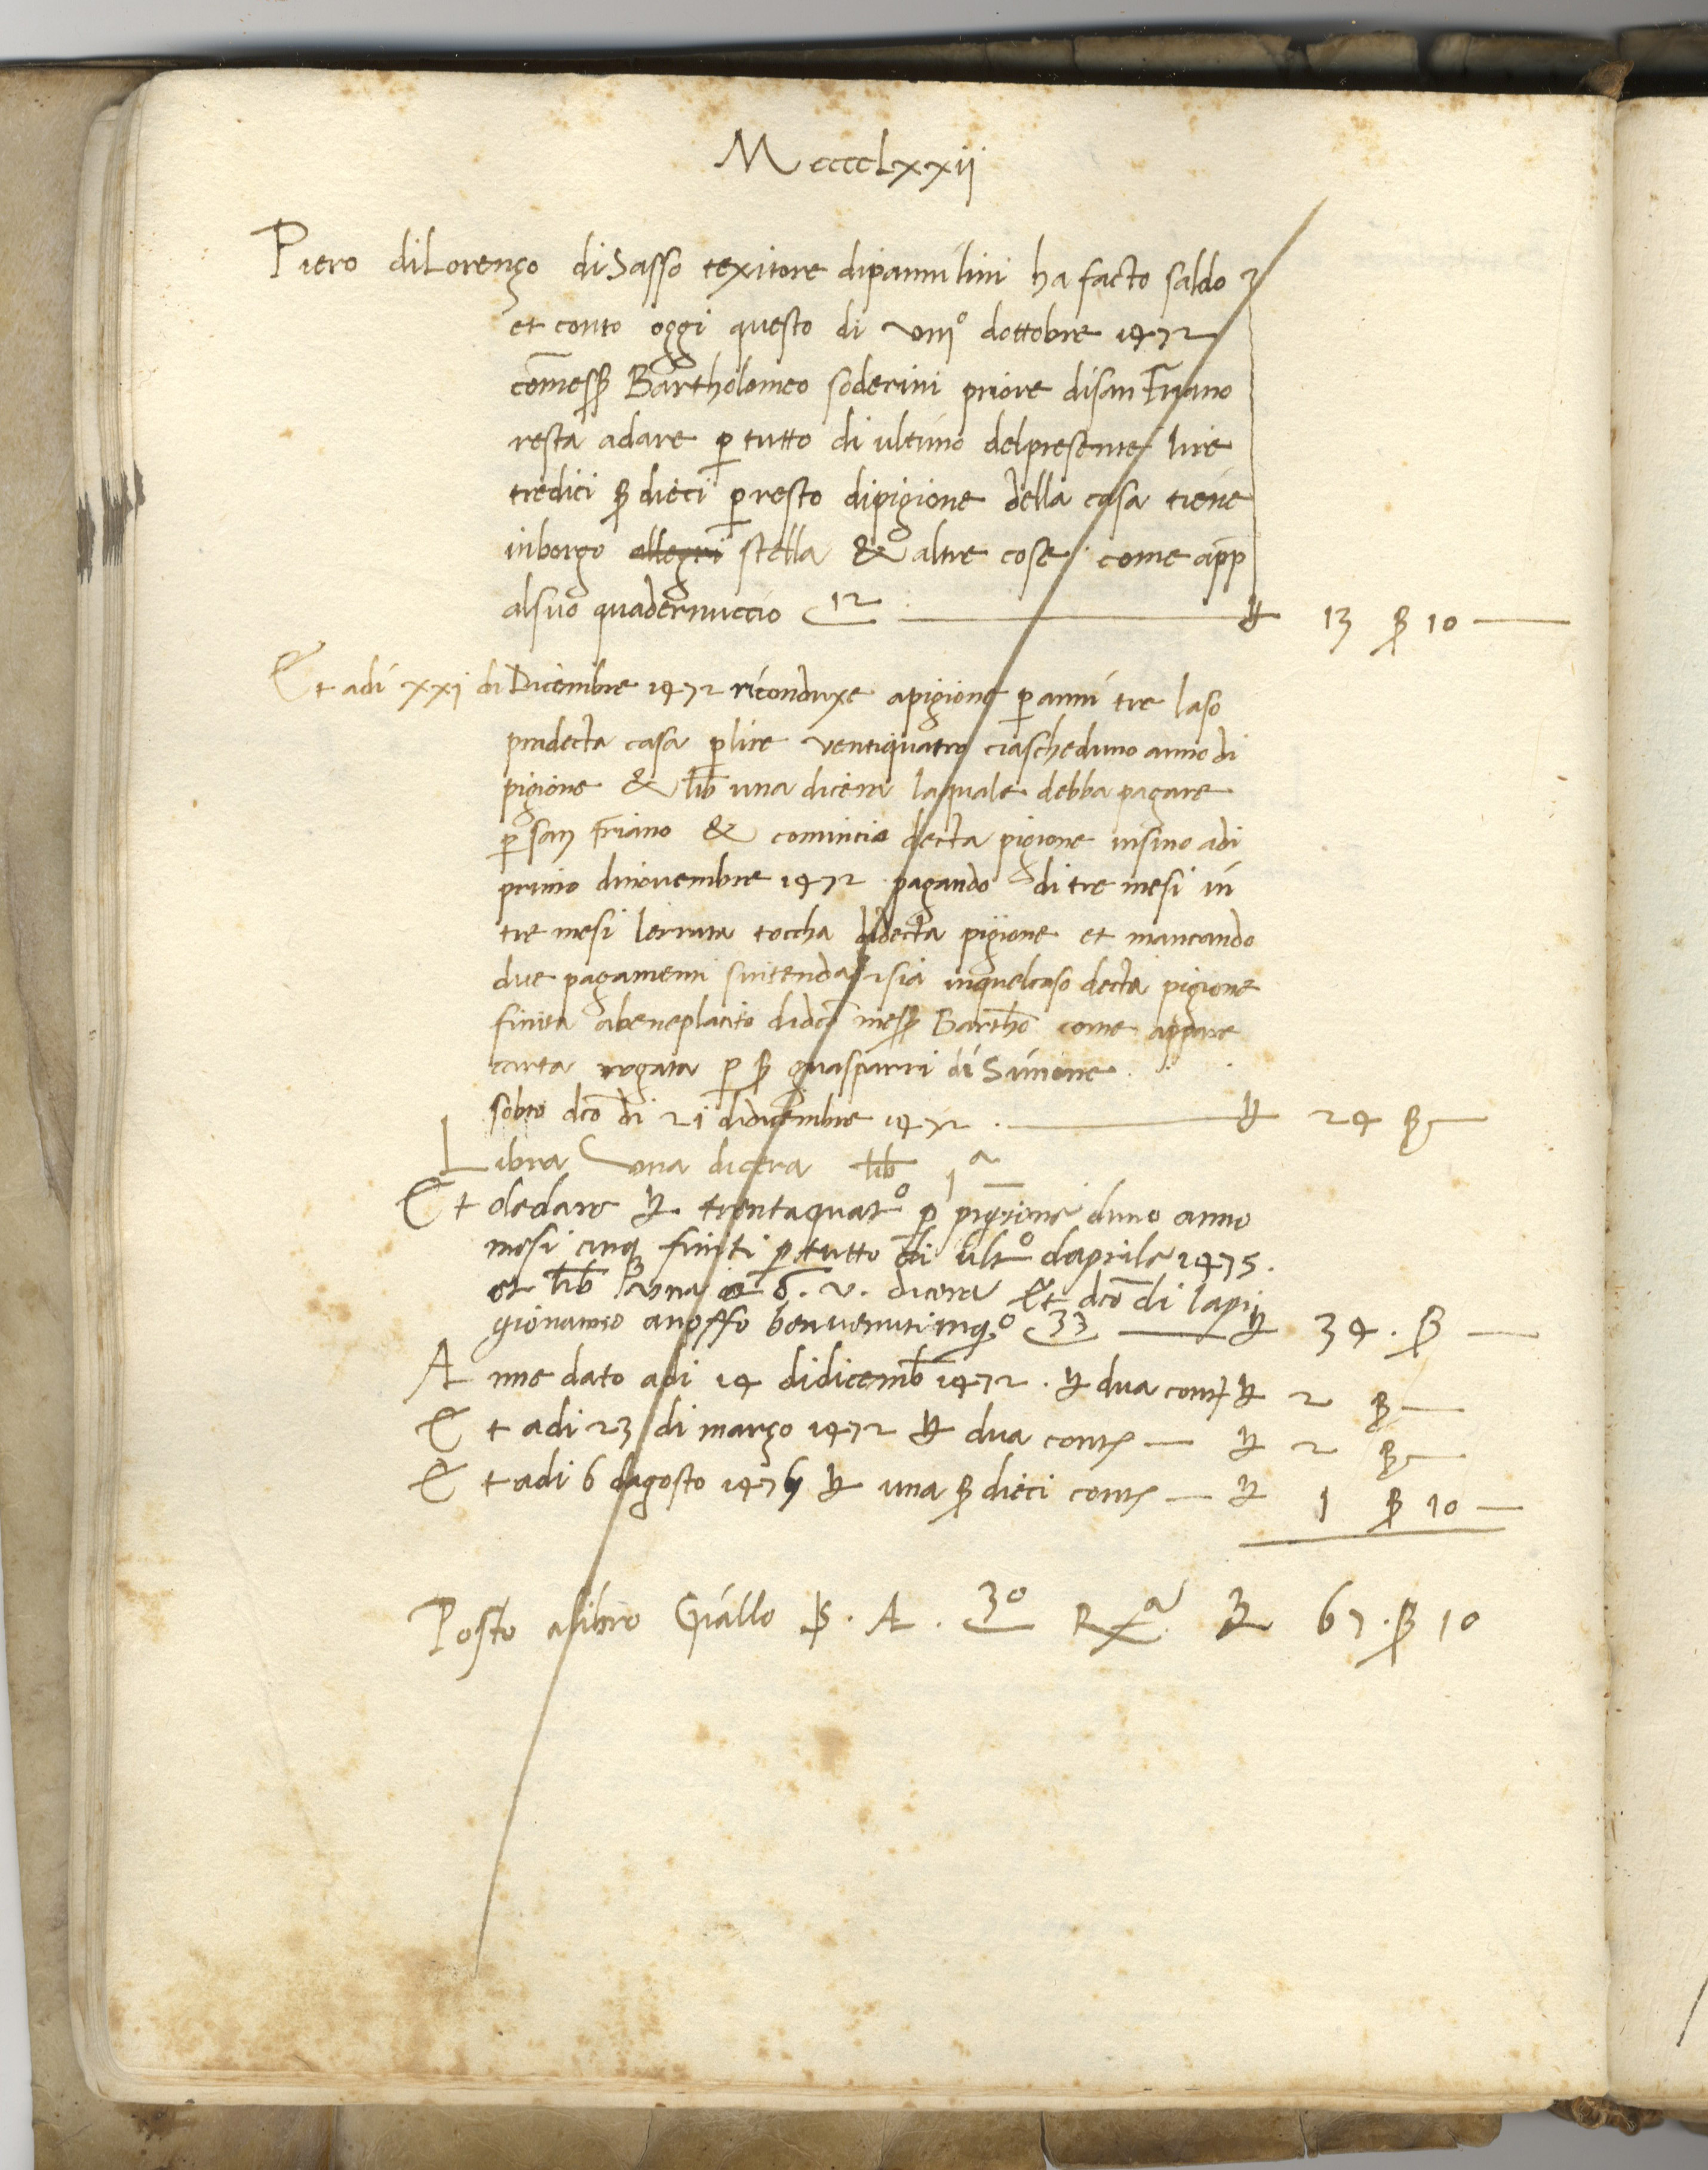 MccccLxxij
Piero diLorenço disasso texitore dipannilini ha facto saldo
et conto oggi questo di viiiº dottobre 1472
comess Bartholomeo soderini priore disan Friano
resta adare p tutto di ultimo delpresente lire
tredici ß dieci p resto dipigione della casa tiene
inborgo allegri stella & altre cose come app
alsuo quadernuccio 12 ₶ 13 ß 10 —
Et adi xxj di Dicembre 1472 riconduxe apigione p anni tre laso
pradecta casa p lire ventiquatro ciascheduno anno di
pigione & lib una dicera laquale debba pagare
p san Friano & comincio decta pigione insino adi
primo dinovembre 1472 pagando di tre mesi in
tre mesi lerrata toccha didecta pigione et mancando
due pagamenti sintenda & sia inquelcaso decta pigione
finita abeneplacito didco mess Bartho come appare
carta rogata p ß guasparri di Simone
sotto dco di 21 didicembre 1472 ₶ 24 ß —
Libra una dicera lib 1ª
Et dedare ₶ trentaquatº p pigione duno anno
mesi cinq finiti p tutto di ultº daprile 1475.
et lib una et . v. dicera Et dco di lapi
gionamo anoffo benvenuti inqº 33 — ₶ 34 . ß —
Anne dato adi 14 didicemb 1472 . ₶ dua cont ₶ 2 ß —
Et adi 23 di março 1472 ₶ dua cont — ₶ 2 ß —
Et adi 6 dagosto 147 ₶ una ß dieci cont — ₶ 1 ß 10 —
Posto alibro Giallo S. A. 30 Rª ₶ 67 . ß 10